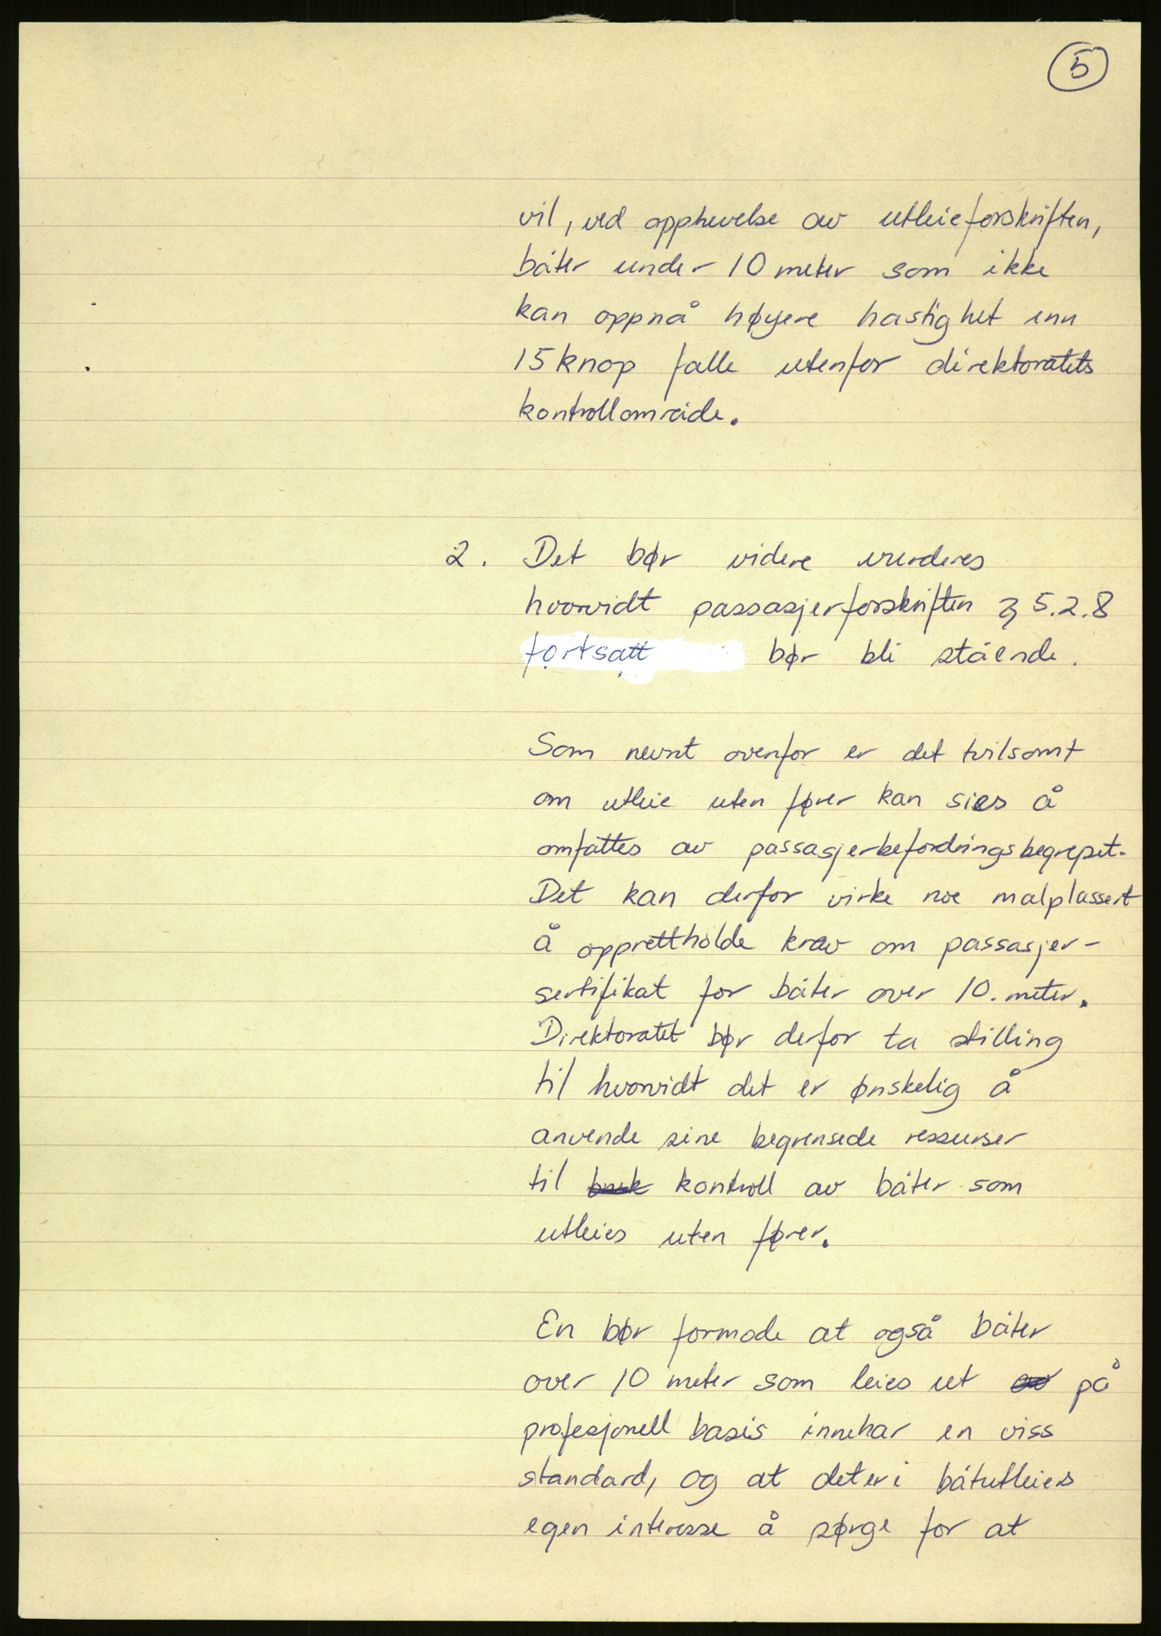 5
vil, ved opphevelse av utleieforskriften,
båter under 10 meter som ikke
kan oppnå høyere hastighet enn
15 knop falle utenfor direktoratets
kontrollområde.
2. Det bør videre vurderes
hvorvidt passasjerforskriften § 5.2.8
fortsatt bør bli stående.
Som nevnt ovenfor er det tvilsomt
om utleie uten fører kan sies å
omfattes av passasjerbefordringsbegrepet.
Det kan derfor virke noe malplassert
å opprettholde krav om passasjer-
sertifikat for båter over 10. meter.
Direktoratet bør derfor ta stilling
til hvorvidt det er ønskelig å
anvende sine begrensede ressurser
til kontroll av båter som
utleies uten fører.
En bør formode at også båter
over 10 meter som leies ut på
profesjonell basis innehar en viss
standard, og at det er i båtutleiers
egen interesse å sørge for at